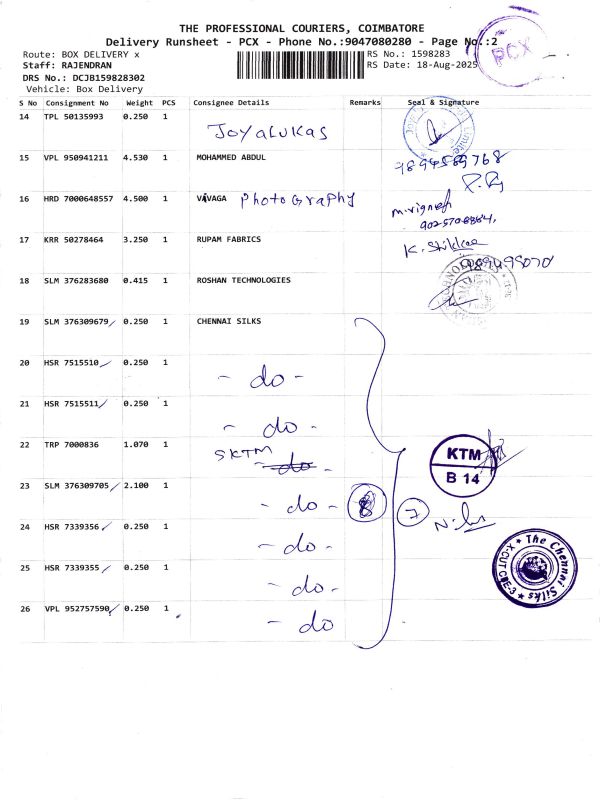 THE PROFESSIONAL COURIERS, COIMBATORE
Delivery Runsheet - PCX - Phone No.:9047080280 - Page No.:2
Route: BOX DELIVERY x
RS No.: 1598283
Staff: RAJENDRAN
RS Date: 18-Aug-2025
DRS No.: DCJB159828302
Vehicle: Box Delivery
PCX
S No Consignment No Weight PCS Consignee Details Remarks Seal & Signature
14 TPL 50135993 0.250 1 JOYALUKAS
15 VPL 950941211 4.530 1 MOHAMMED ABDUL
16 HRD 7000648557 4.500 1 VAVAGA PhotoGRAPhy
17 KRR 50278464 3.250 1 RUPAM FABRICS
18 SLM 376283680 0.415 1 ROSHAN TECHNOLOGIES
19 SLM 376309679 0.250 1 CHENNAI SILKS
20 HSR 7515510 0.250 1 - do -
21 HSR 7515511 0.250 1 - do -
22 TRP 7000836 1.070 1 SKTM - do -
KTM
B 14
23 SLM 376309705 2.100 1 - do - 8 7
24 HSR 7339356 0.250 1 - do -
25 HSR 7339355 0.250 1 - do -
The Chennai Silks
26 VPL 952757590 0.250 1 - do